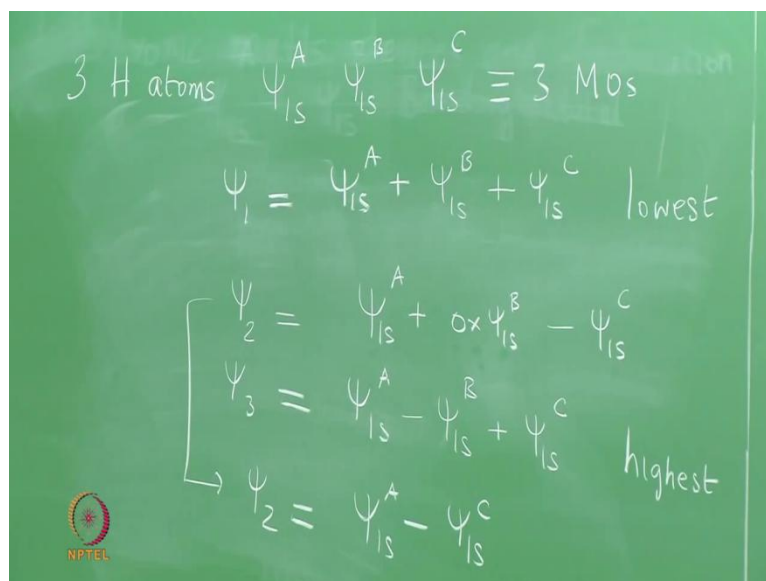 3 H atoms Ψ₁ₛᴬ Ψ₁ₛᴮ Ψ₁ₛᶜ ≡ 3 MOs
Ψ₁ = Ψ₁ₛᴬ + Ψ₁ₛᴮ + Ψ₁ₛᶜ lowest
Ψ₂ = Ψ₁ₛᴬ + 0×Ψ₁ₛᴮ − Ψ₁ₛᶜ
Ψ₃ = Ψ₁ₛᴬ − Ψ₁ₛᴮ + Ψ₁ₛᶜ highest
→ Ψ₂ = Ψ₁ₛᴬ − Ψ₁ₛᶜ
NPTEL